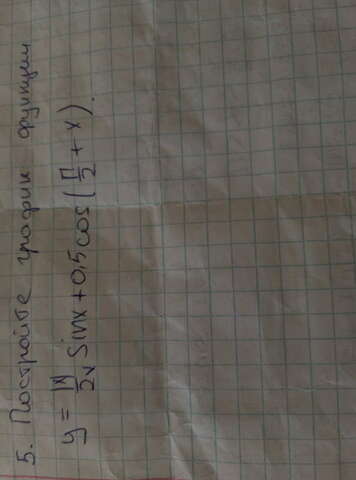 5. Постройте график функции
y = |x|/2x sinx + 0,5 cos (π/2 + x).